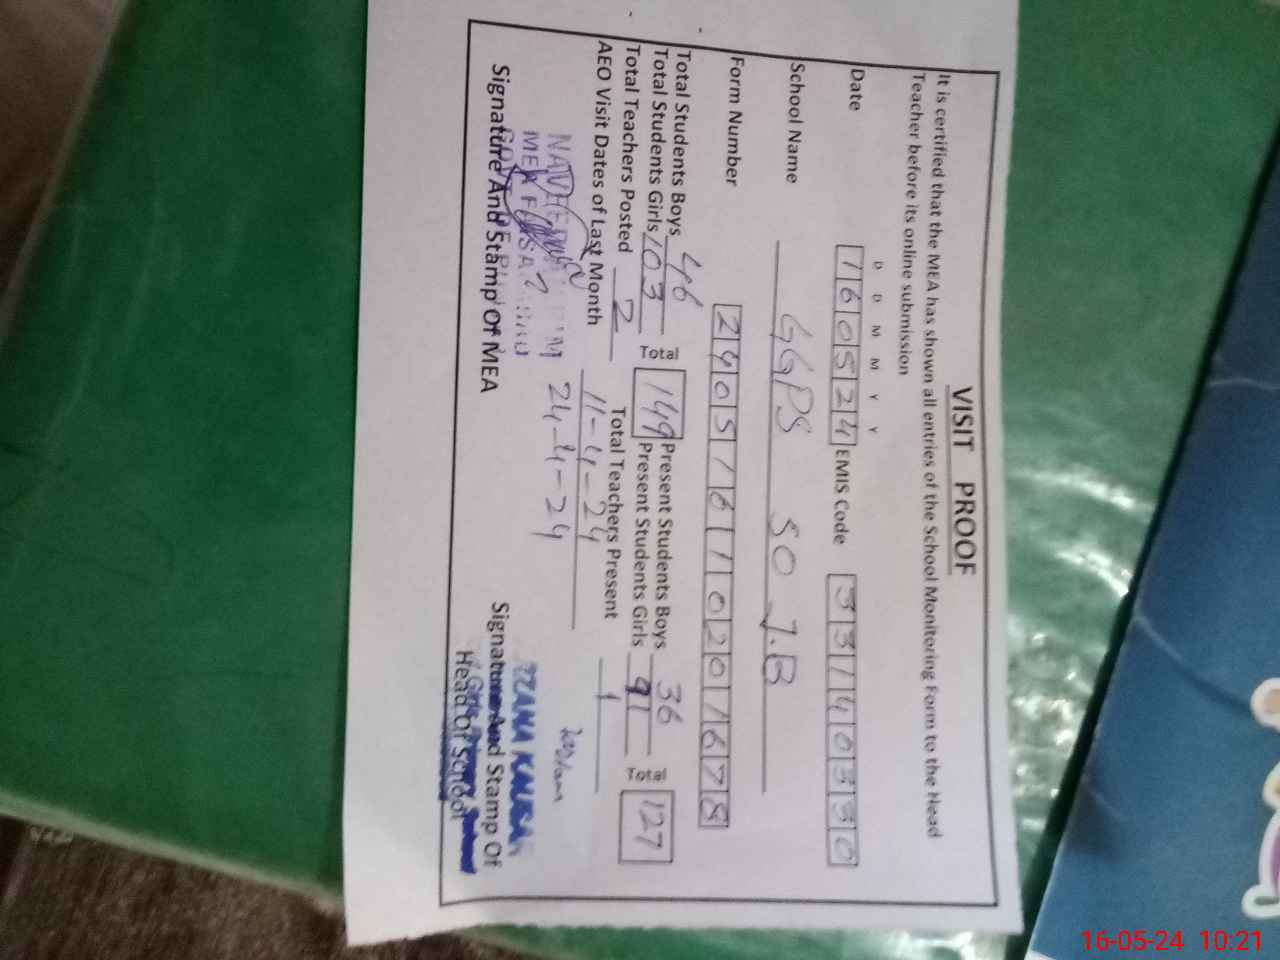 VISIT PROOF
It is certified that the MEA has shown all entries of the School Monitoring Form to the Head
Teacher before its online submission
D D M M Y Y
Date 160524 EMIS Code 33140330
School Name GGPS 50 J.B
Form Number 240516110201678
Total Students Boys 46 Total 149 Present Students Boys 36 Total 127
Total Students Girls 103 Present Students Girls 91
Total Teachers Posted 2 Total Teachers Present 1
AEO Visit Dates of Last Month 11-4-24
24-4-24
MEA
KAUSAR
Signature And Stamp Of MEA
Signature And Stamp Of
Head Of School
16-05-24 10:21